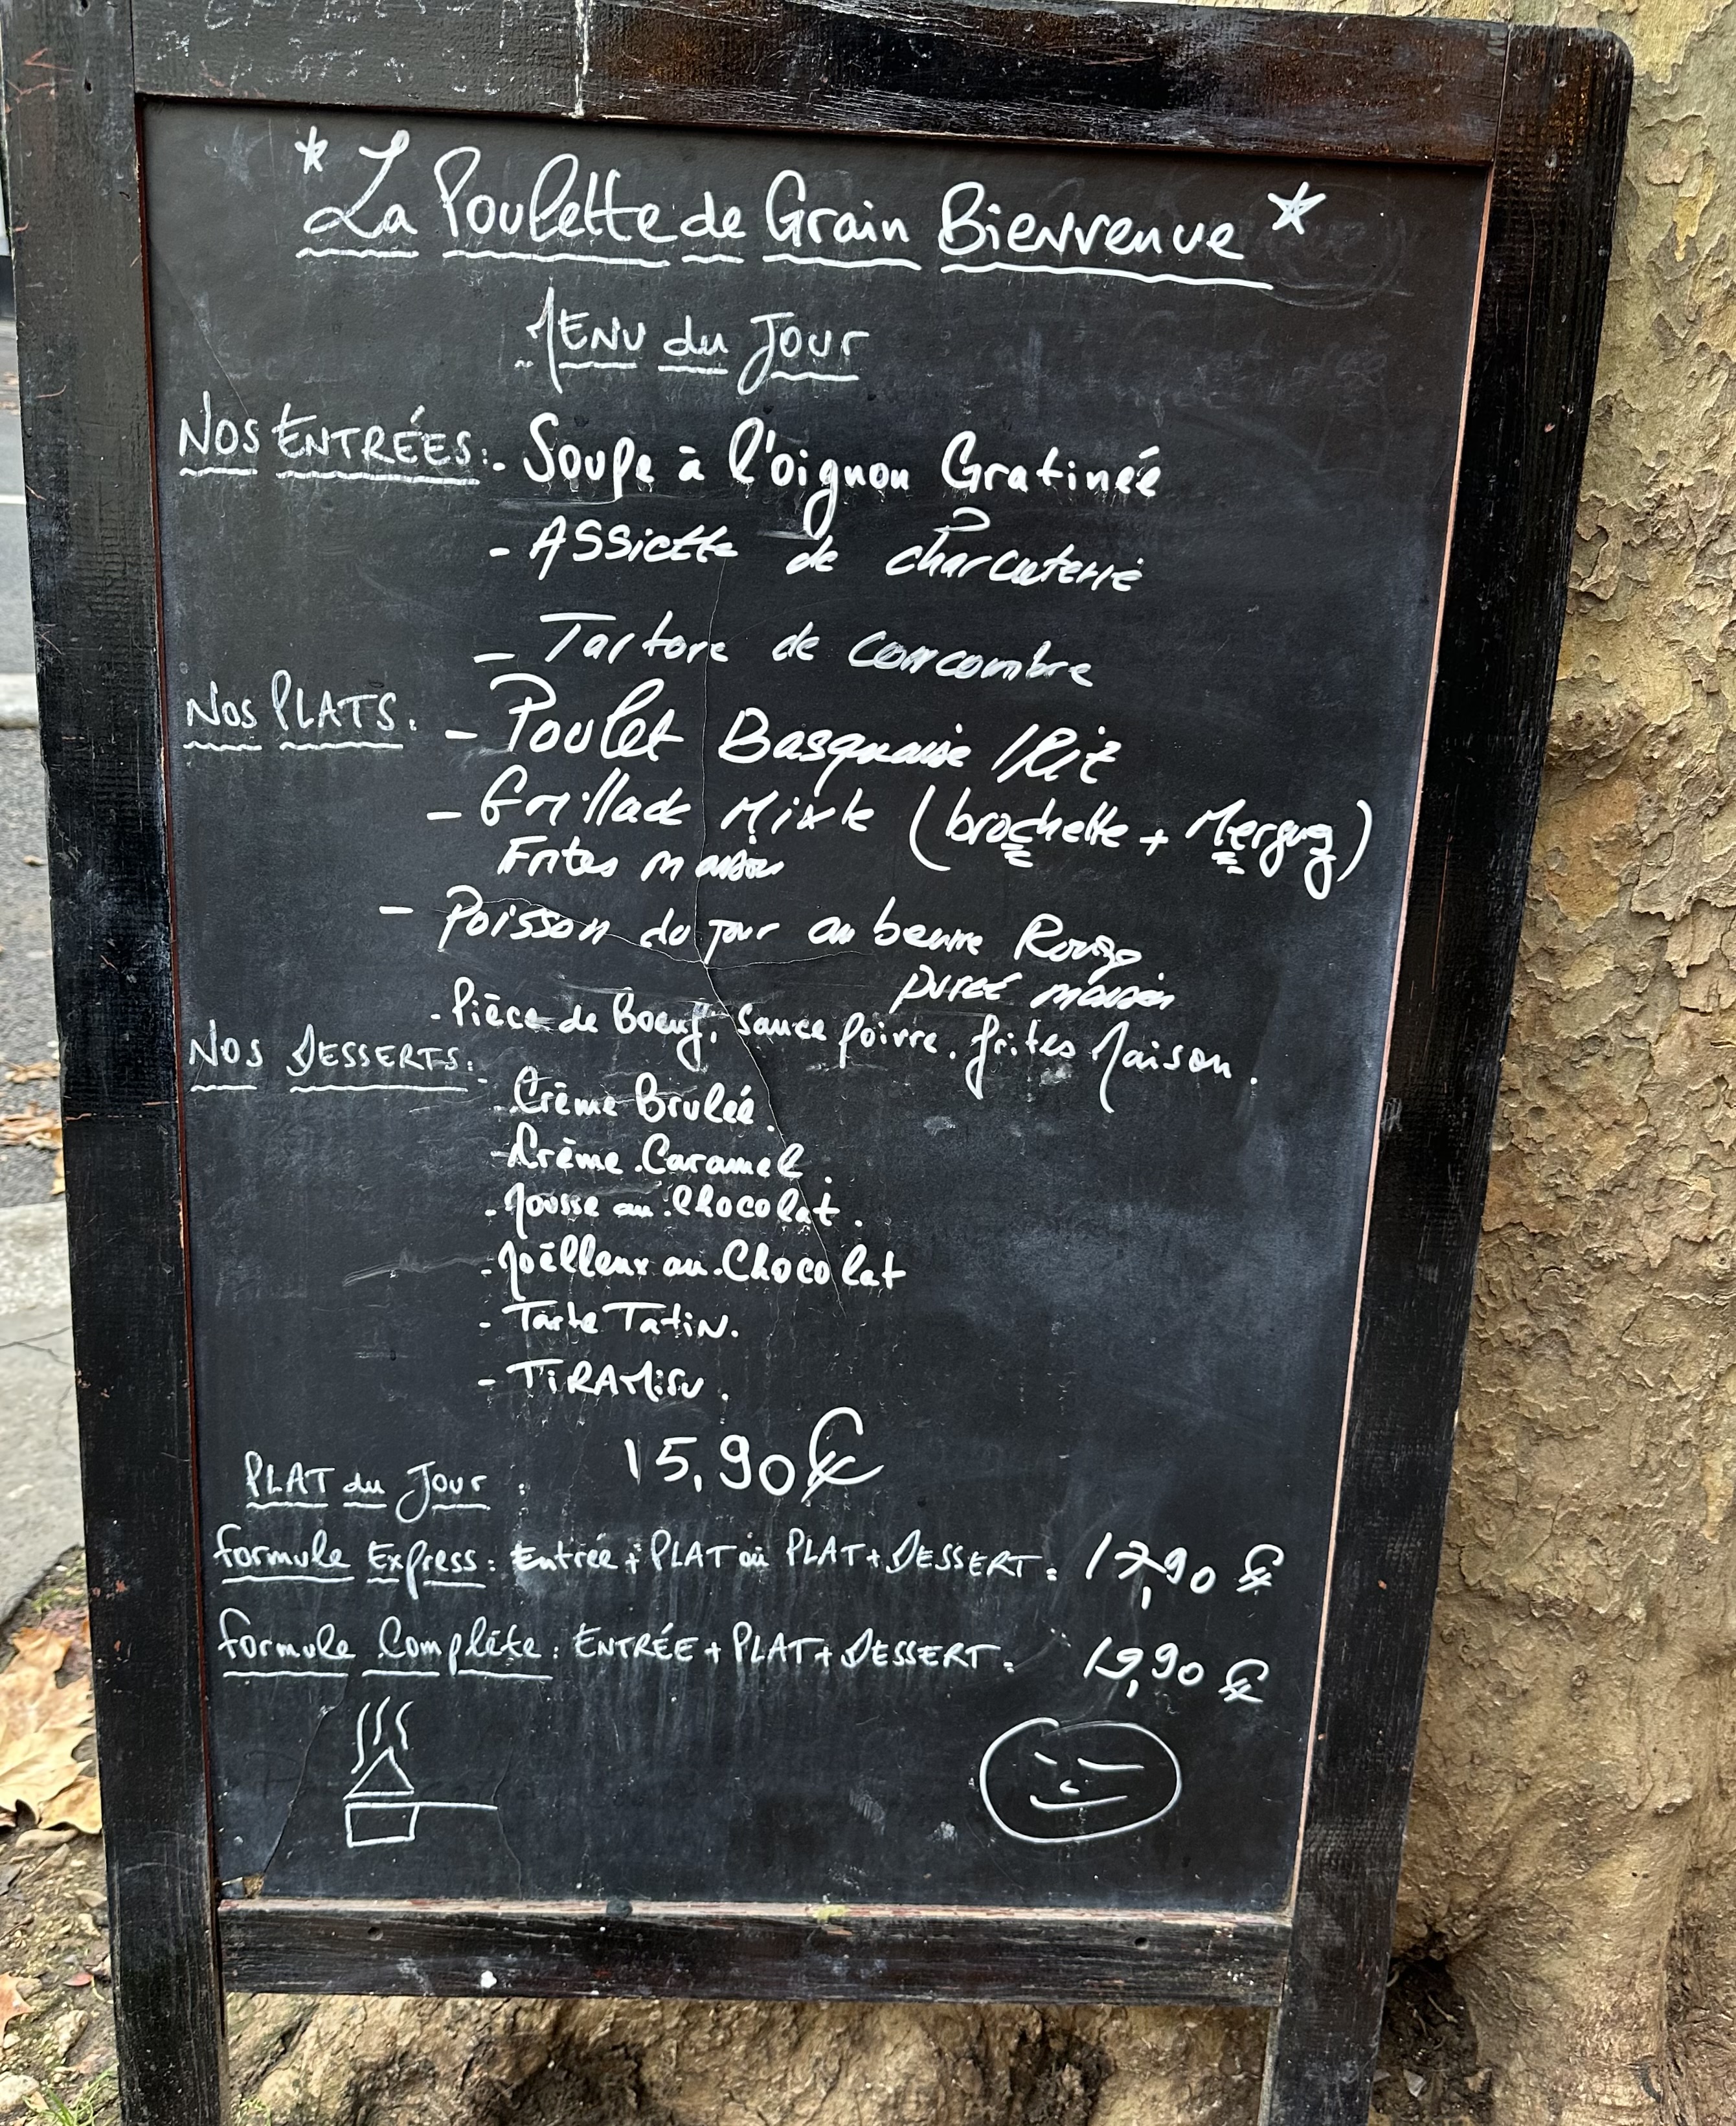 * La Poulette de Grain Bienvenue *
Menu du Jour
Nos Entrées: - Soupe à l'oignon Gratinéé
- Assiette de charcuterie
- Tartare de concombre
Nos Plats: - Poulet Basquaise / Riz
- Grillade Mixte (brochette + Merguez)
Frites maison
- Poisson du jour au beurre Rouge
purée maison
- Pièce de Boeuf, sauce poivre. frites Maison.
Nos Desserts: - Crème Bruléé.
- Crème Caramel.
- Mousse au Chocolat.
- Moëlleux au Chocolat
- Tarte Tatin.
- Tiramisu.
Plat du Jour : 15,90 €
Formule Express: Entrée + Plat ou Plat + Dessert = 17,90 €
Formule Complète: Entrée + Plat + Dessert = 19,90 €